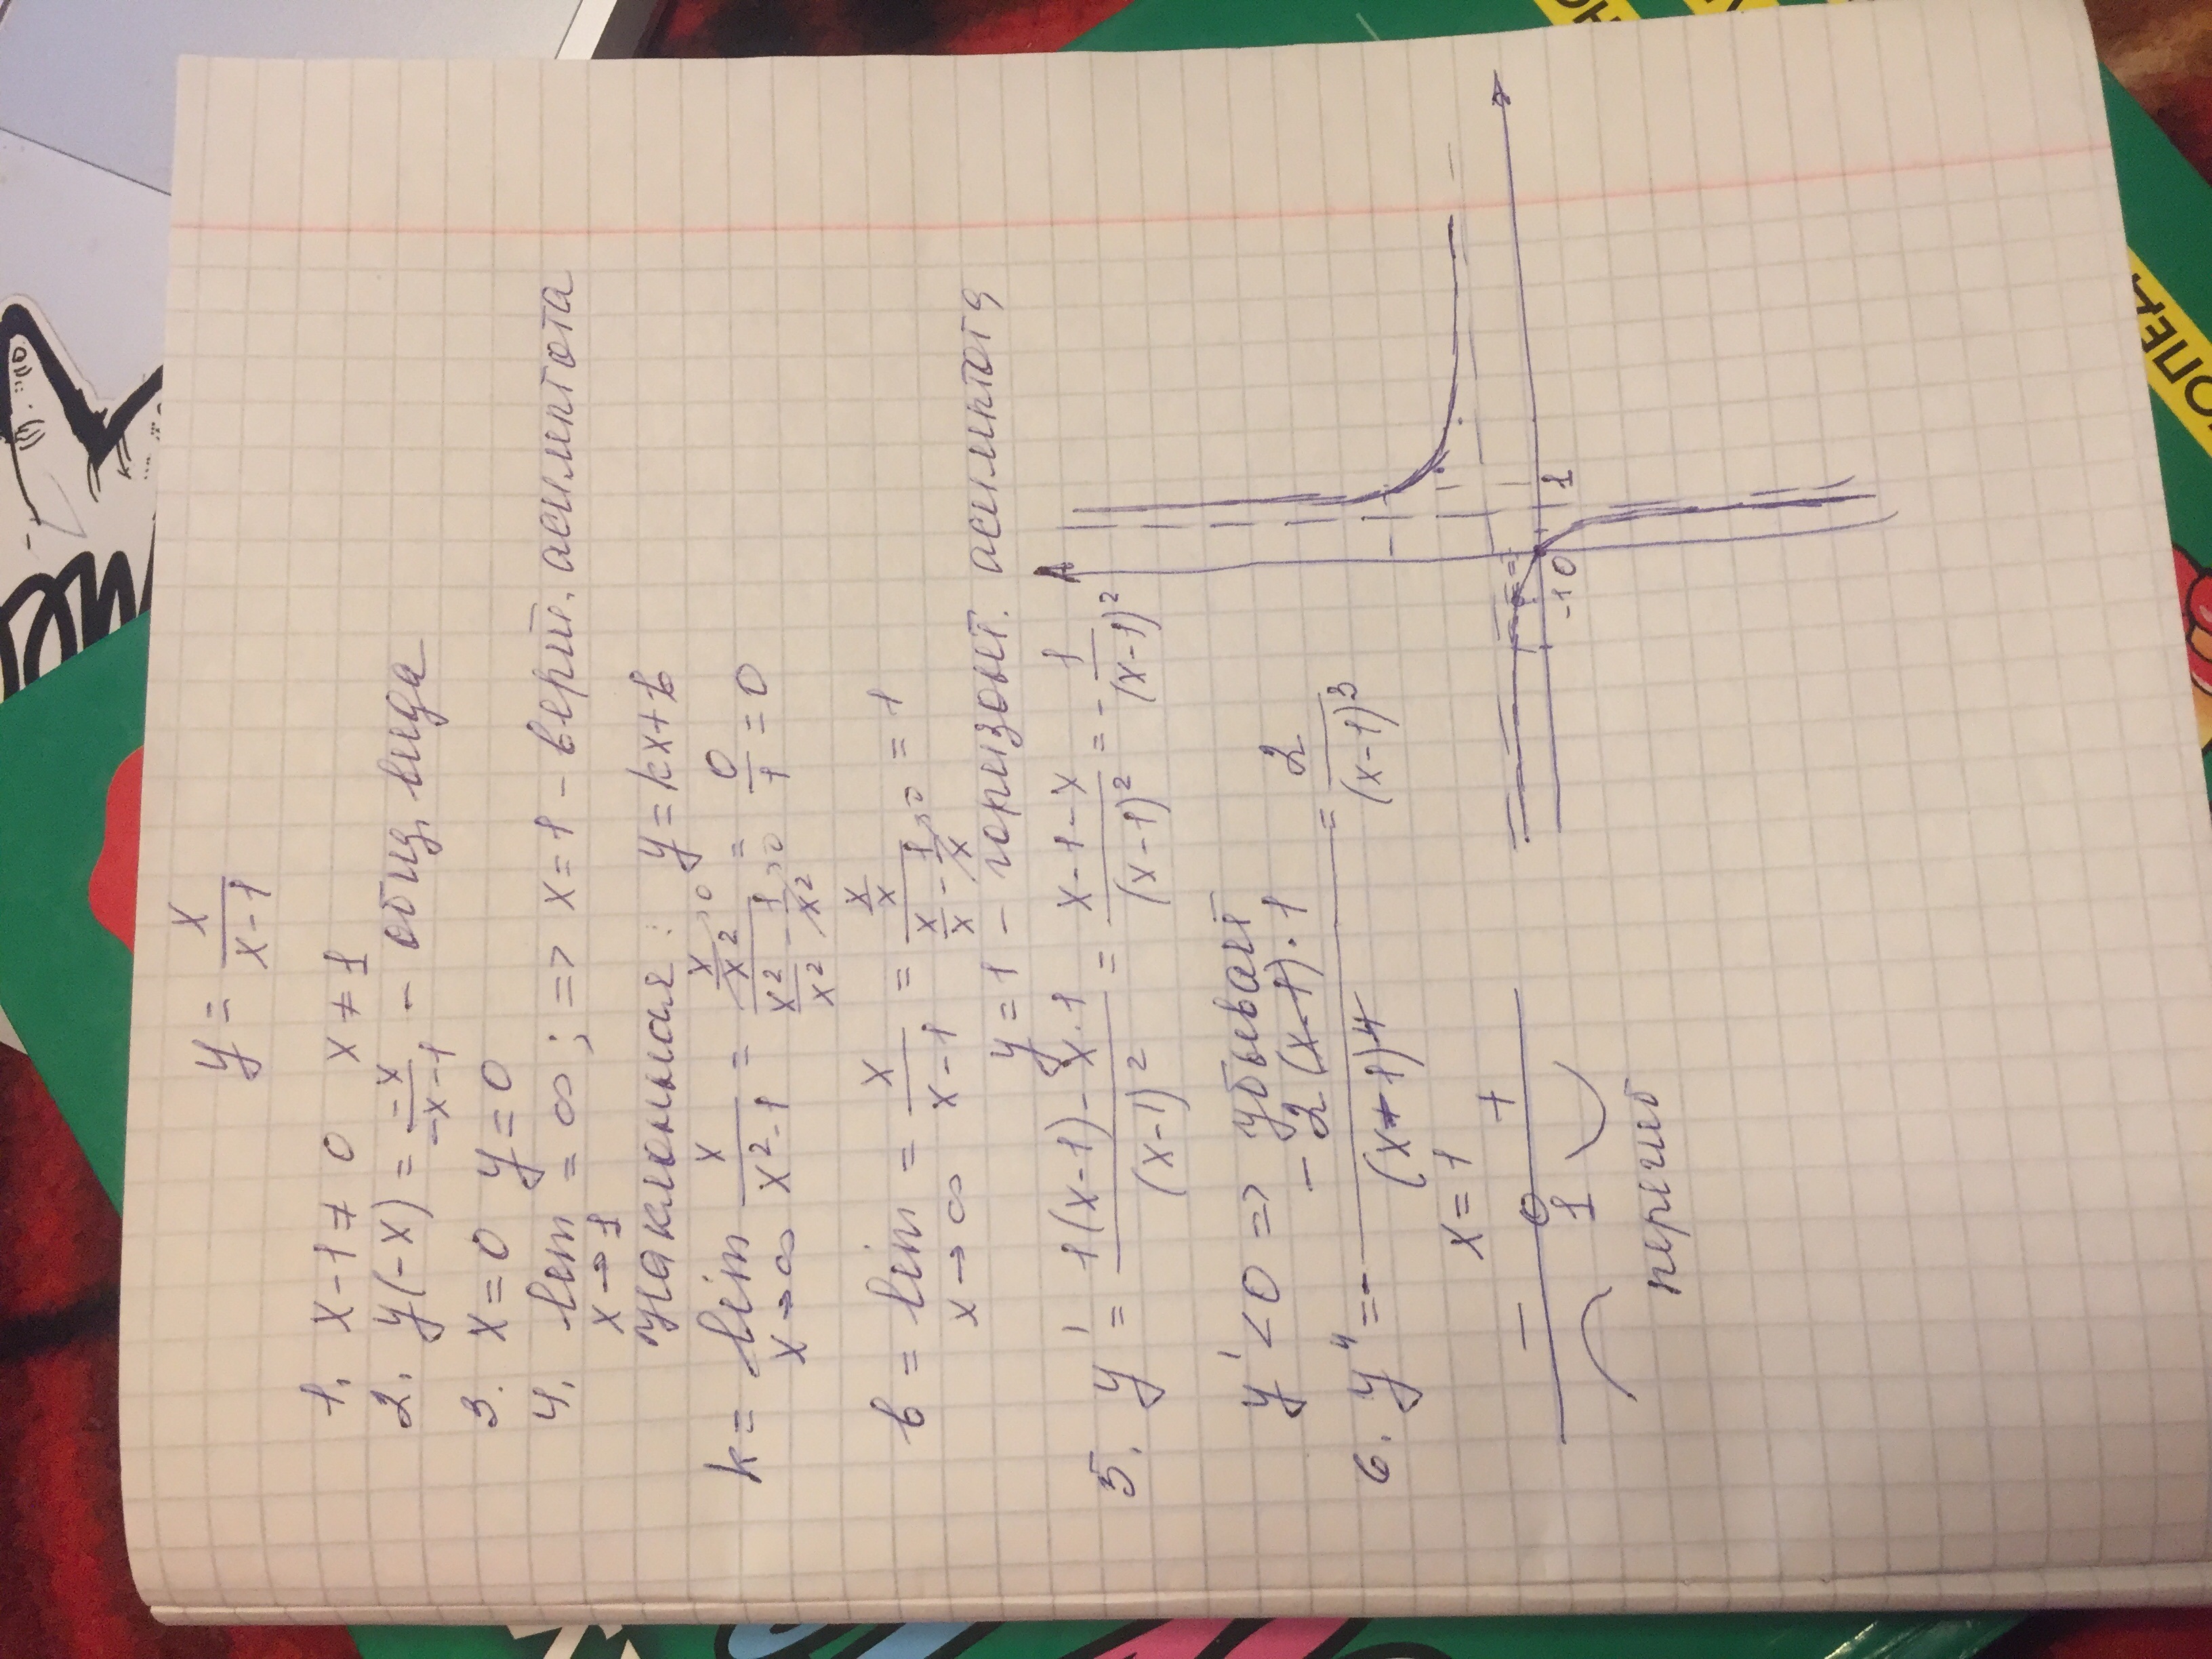 y = x/(x-1)
1. x-1≠0 x≠1
2. y(-x) = -x/(-x-1) - общ. вида
3. x=0 y=0
4. lim x→1 = ∞; => x=1 - верт. асимптота
наклонная: y=kx+b
k = lim x→∞ x/(x²-1) = (x/x² →0)/(x²/x² - 1/x² →0) = 0/1 = 0
b = lim x→∞ x/(x-1) = (x/x)/(x/x - 1/x →0) = 1
y=1 - горизонт. асимптота
5. y' = (1(x-1) - x·1)/(x-1)² = (x-1-x)/(x-1)² = - 1/(x-1)²
y'<0 => убывает
6. y'' = - (-2(x-1)·1)/(x-1)⁴ = 2/(x-1)³
x=1
- +
1
перегиб
-1 0 1
ОПЕА